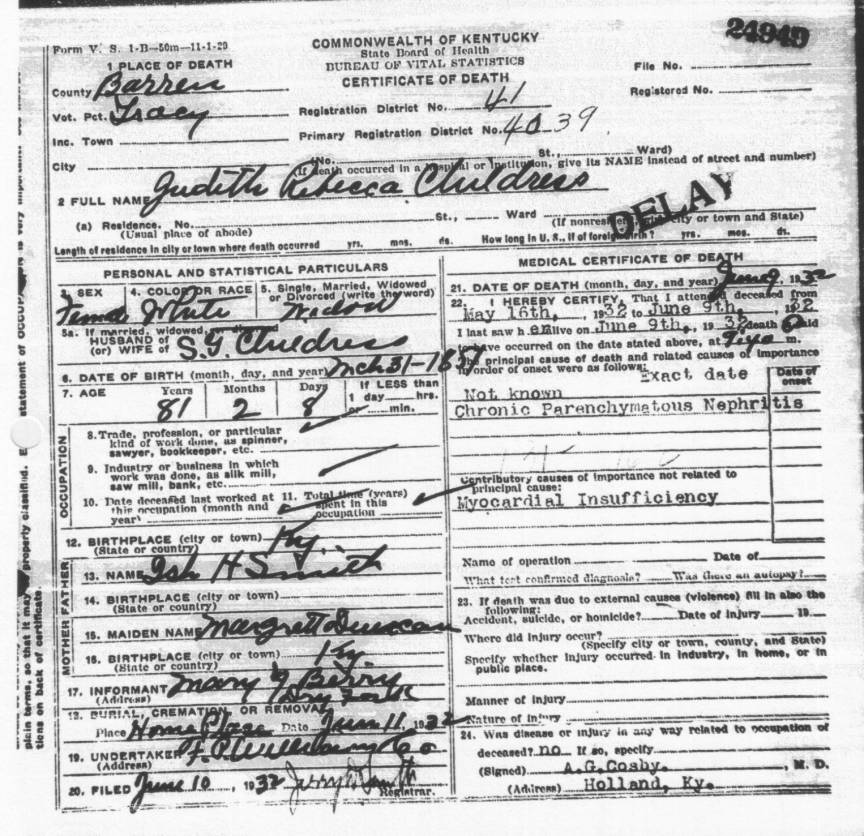 24949
Form V. S. 1-B—50m—11-1-29
COMMONWEALTH OF KENTUCKY
State Board of Health
BUREAU OF VITAL STATISTICS
CERTIFICATE OF DEATH
File No.
Registered No.
1 PLACE OF DEATH
County Barren
Vot. Pct. Tracy
Inc. Town
City
Registration District No. 41
Primary Registration District No. 4039
(No. St., Ward)
(If death occurred in a hospital or institution, give its NAME instead of street and number)
2 FULL NAME Judith Rebecca Childress
DELAY
(a) Residence. No. St., Ward
(Usual place of abode)
(If nonresident city or town and State)
Length of residence in city or town where death occurred yrs. mos. ds. How long in U. S., if of foreign birth? yrs. mos. ds.
PERSONAL AND STATISTICAL PARTICULARS
3. SEX 4. COLOR OR RACE 5. Single, Married, Widowed or Divorced (write the word)
Female White Widow
5a. If married, widowed,
HUSBAND of
(or) WIFE of S. G. Childress
6. DATE OF BIRTH (month, day, and year) Mch 31-18
7. AGE Years Months Days If LESS than
1 day hrs.
or min.
81 2 8
OCCUPATION
8. Trade, profession, or particular
kind of work done, as spinner,
sawyer, bookkeeper, etc.
9. Industry or business in which
work was done, as silk mill,
saw mill, bank, etc.
10. Date deceased last worked at this occupation (month and year)
11. Total time (years) spent in this occupation
12. BIRTHPLACE (city or town) Ky.
(State or country)
FATHER
13. NAME Ish H Smith
14. BIRTHPLACE (city or town)
(State or country)
MOTHER
15. MAIDEN NAME Margrett Duncan
16. BIRTHPLACE (city or town) Ky.
(State or country)
17. INFORMANT Mary G Berry
(Address) Dry Fork
18. BURIAL, CREMATION, OR REMOVAL
Place Home Place Date June 11, 1932
19. UNDERTAKER F. P. Co
(Address)
20. FILED June 10, 1932 Smith
Registrar.
MEDICAL CERTIFICATE OF DEATH
21. DATE OF DEATH (month, day, and year) June 9, 1932
22. I HEREBY CERTIFY, That I attended deceased from
May 16th, 1932 to June 9th, 1932
I last saw her alive on June 9th, 1932 death said
to have occurred on the date stated above, at m.
The principal cause of death and related causes of importance
in order of onset were as follows: Exact date
Date of onset
Not known
Chronic Parenchymatous Nephritis
Contributory causes of importance not related to
principal cause:
Myocardial Insufficiency
Name of operation Date of
What test confirmed diagnosis? Was there an autopsy?
23. If death was due to external causes (violence) fill in also the
following:
Accident, suicide, or homicide? Date of injury 19
Where did injury occur?
(Specify city or town, county, and State)
Specify whether injury occurred in industry, in home, or in
public place.
Manner of injury
Nature of injury
24. Was disease or injury in any way related to occupation of
deceased? no If so, specify
(Signed) A.G. Cosby, M. D.
(Address) Holland, Ky.
plain terms, so that it may properly classified. E statement of OCCUP
tions on back of certificate.